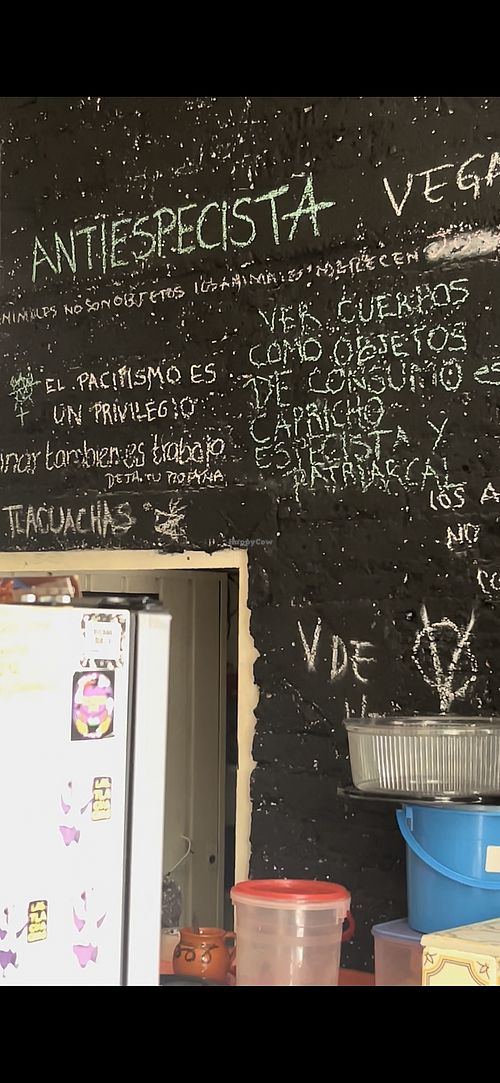 ANTIESPECISTA
VEGA
NIMALES NO SON OBJETOS LOS ANIMALES MERECEN
VER CUERPOS
COMO OBJETOS
DE CONSUMO es
CAPRICHO
ESPECISTA Y
PATRIARCAL
EL PACIFISMO ES
UN PRIVILEGIO
inar tambien es trabajo
TLACUACHAS
LOS A
NO
HappyCow
V DE